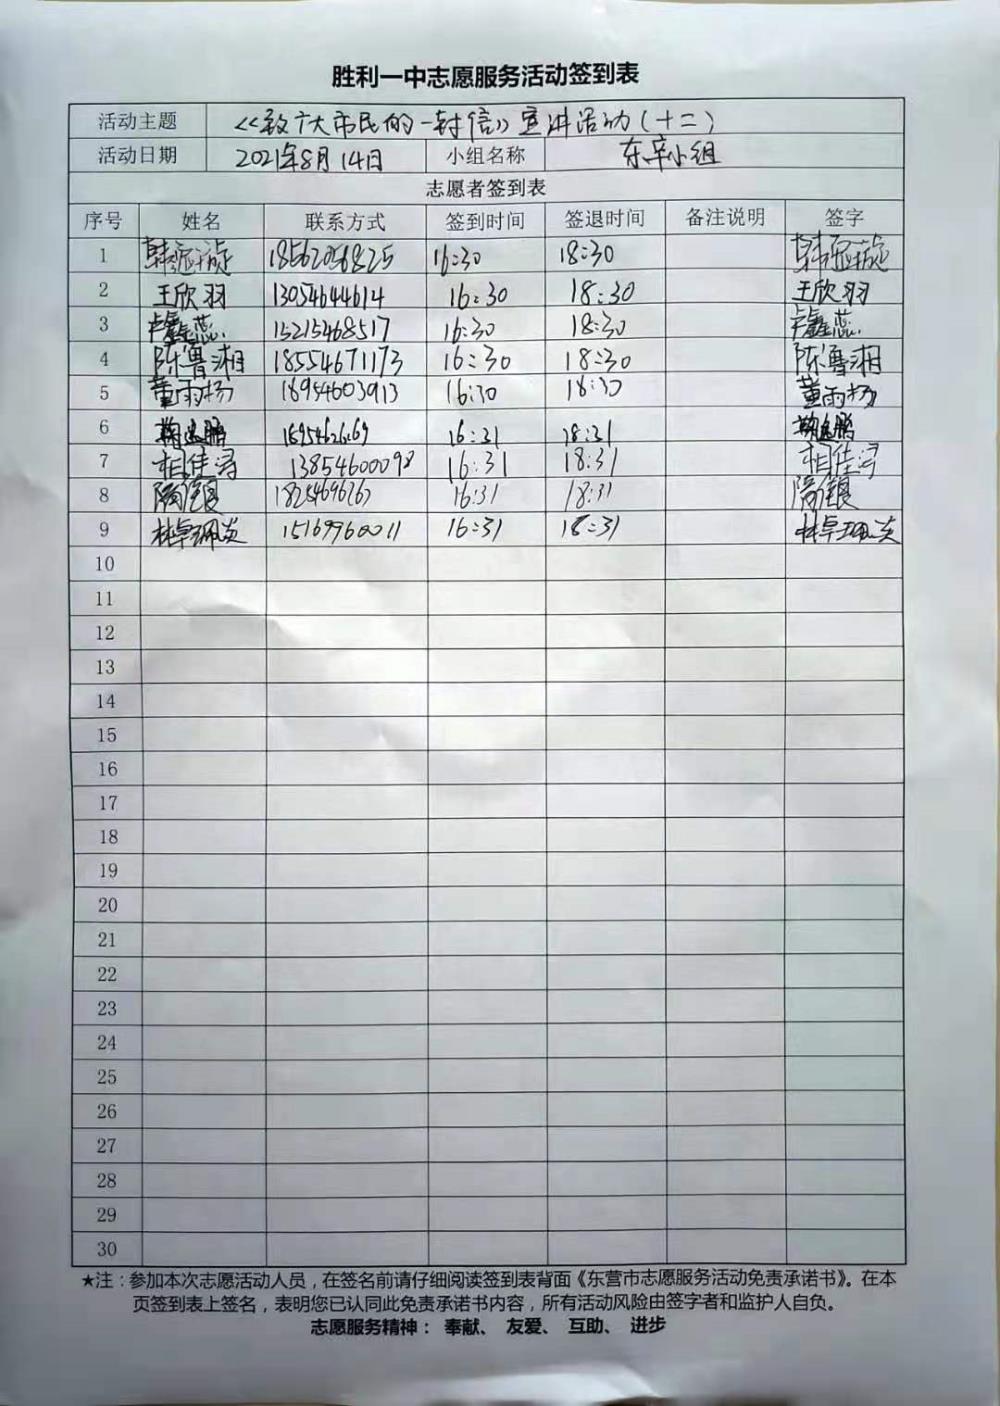 胜利一中志愿服务活动签到表
活动主题 《致广大市民的一封信》宣讲活动(十二)
活动日期 2021年8月14日 小组名称 东辛小组
志愿者签到表
序号 姓名 联系方式 签到时间 签退时间 备注说明 签字
1 18562056825 16:30 18:30
2 王欣羽 13054644614 16:30 18:30 王欣羽
3 卢鑫蕊 15215468517 16:30 18:30 卢鑫蕊
4 陈鲁湘 18554671173 16:30 18:30 陈鲁湘
5 董雨杨 18954603913 16:30 18:30 董雨杨
6 16:31 18:31
7 相佳浔 13854600098 16:31 18:31 相佳浔
8 16:31 18:31
9 15169960011 16:31 18:31
10
11
12
13
14
15
16
17
18
19
20
21
22
23
24
25
26
27
28
29
30
★注：参加本次志愿活动人员，在签名前请仔细阅读签到表背面《东营市志愿服务活动免责承诺书》。在本
页签到表上签名，表明您已认同此免责承诺书内容，所有活动风险由签字者和监护人自负。
志愿服务精神： 奉献、 友爱、 互助、 进步